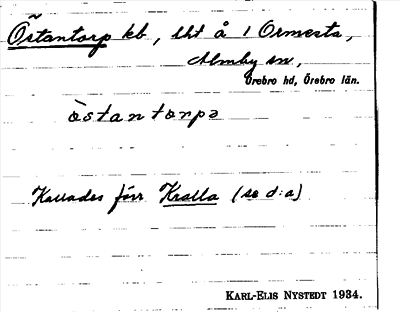 Östantorp kb, lht å 1 Ormesta,
Almby sn,
Örebro hd, Örebro län.
östantorpa
Kallades förr Kralla (se d:a)
KARL-ELIS NYSTEDT 1934.